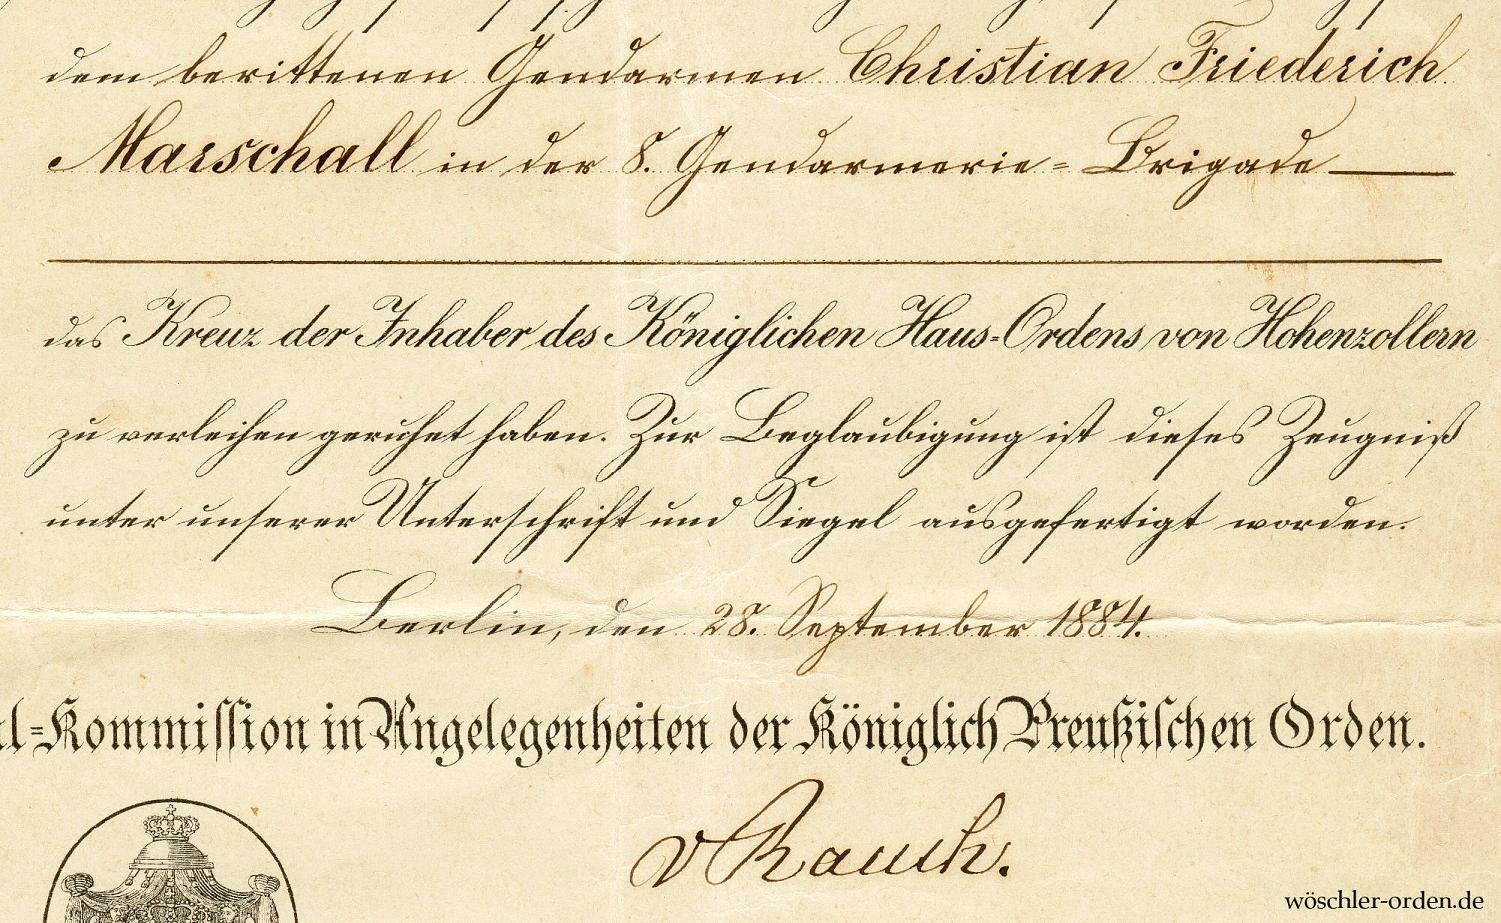 dem berittenen Gendarmen Christian Friederich
Marschall in der 8. Gendarmerie=Brigade
das Kreuz der Inhaber des Königlichen Haus=Ordens von Hohenzollern
zu verleihen geruhet haben. Zur Beglaubigung ist dieses Zeugniß
unter unserer Unterschrift und Siegel ausgefertigt worden.
Berlin, den 28. September 1884.
l=Kommiſſion in Angelegenheiten der Königlich Preußiſchen Orden.
v Rauch.
wöschler-orden.de